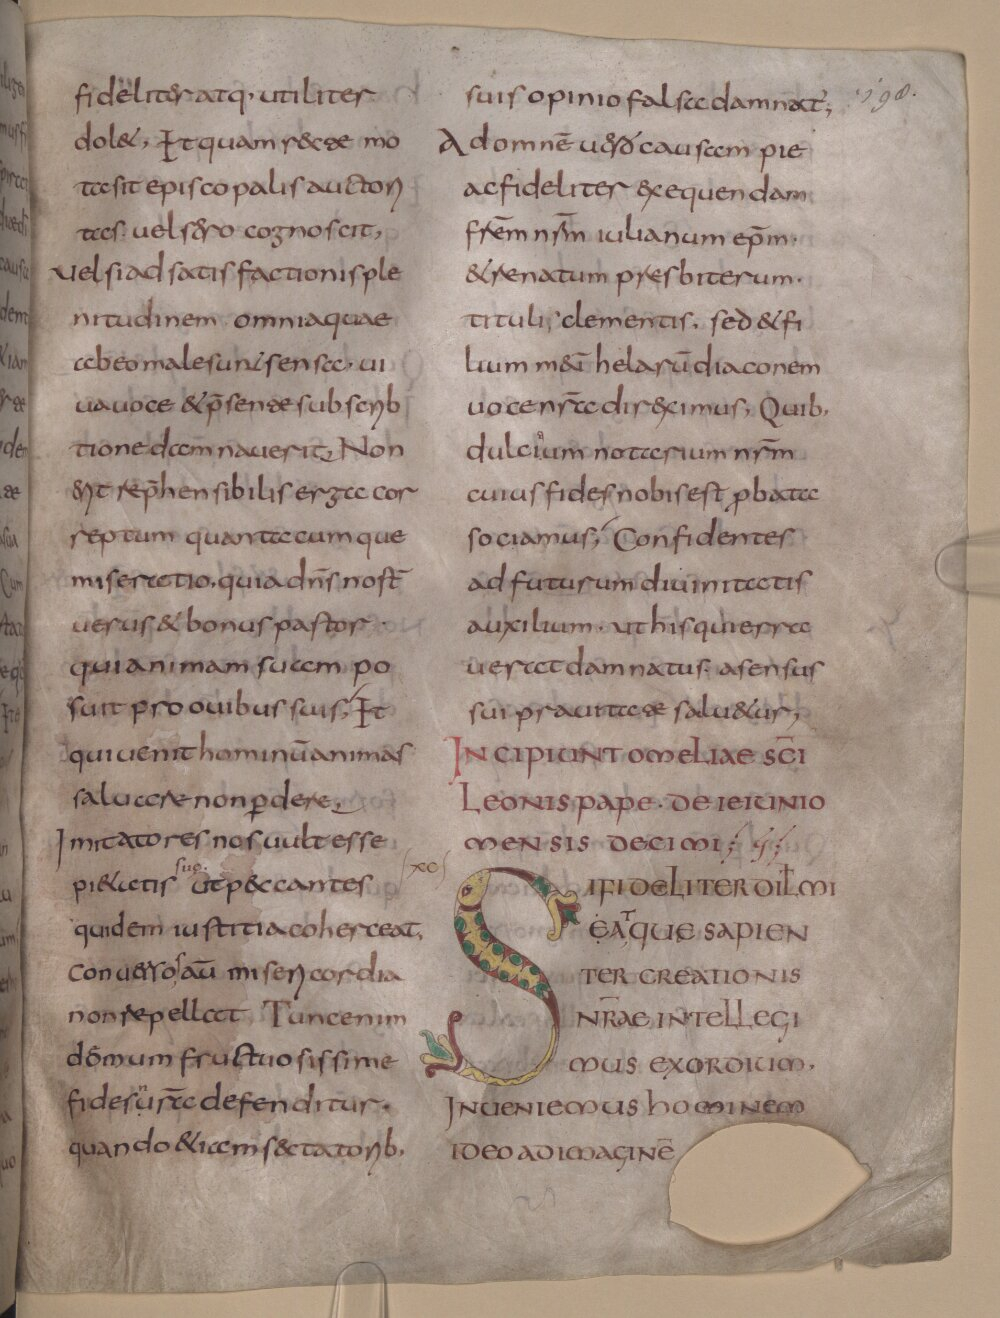 fideliter atq· utiliter
dol&, Et quam recte mo
ta sit episcopalis auctori
tas. uel sero cognoscit,
uel si ad satisfactionis ple
nitudinem omnia quae
ab eo male sunt sensa. ui
ua uoce & p̄sente subscrib
tione damnauerit, Non
erit rep̄hensibilis erga cor
reptum quantacumque
miseratio. quia dn̄s nosт̄
uerus & bonus pastor·
qui animam suam po
suit pro ouibus suis, Et
qui uenit hominū animas
saluare non ꝑdere,
Imitatores nos uult esse
pi&atis suę. ut peccantes
quidem iustitia coherceat,
conuersos aū misericordia
non repellat. Tunc enim
dōmum fructuosissime
fides nr̄a defenditur.
quando &iam sectatorib,
suis opinio falsa damnat̄,
198.
Ad omnē uero causam pie
ac fideliter exequendam
fr̄em nr̄m iulianum ep̄m·
& renatum presbiterum·
tituli clementis. sed & fi
lium meū helarū diaconem
uoce nr̄a direximus, Quib,
dulcium notarium nr̄m
cuius fides nobis est ꝓbata
sociamus, Confidentes
ad futurum diuinitatis
auxilium· ut his qui erra
uerat damnatus. a sensus
sui prauitate salu&ur,
INCIPIUNT OMELIAE SC̄I
LEONIS PAPE· DE IEIUNIO
MENSIS DECIMI;
xc
SI FIDELITER DIL̄MI
EATQUE SAPIEN
TER CREATIONIS
NR̄AE INTELLEGI
MUS EXORDIUM.
INUENIEMUS HOMINEM
IDEO AD IMAGINĒ